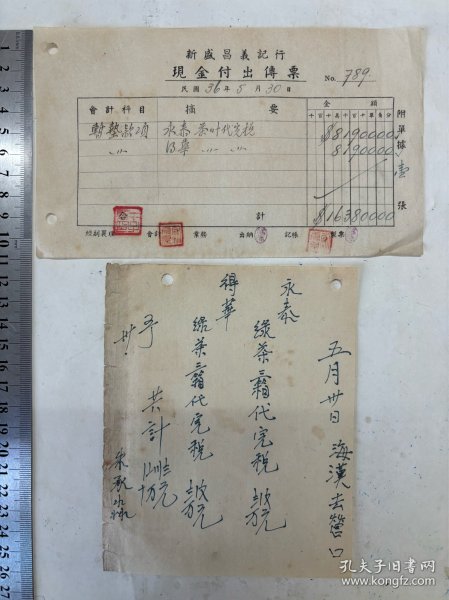 新盛昌義記行
現金付出傳票
No. 789.
民國 36 年 5 月 30 日
會計科目 摘要 金額
千百十萬千百十元角分
暫墊款項 永泰 茶叶代完税 $8190000
得華 $8190000
附單據 壹 張
計 $16380000
經副襄理 會計 業務 出納 記帳 製票
五月卅日 海漢去營口
永泰
綠茶三箱代完税
得華
綠茶三箱代完税
共計
孔夫子旧书网
www.kongfz.com